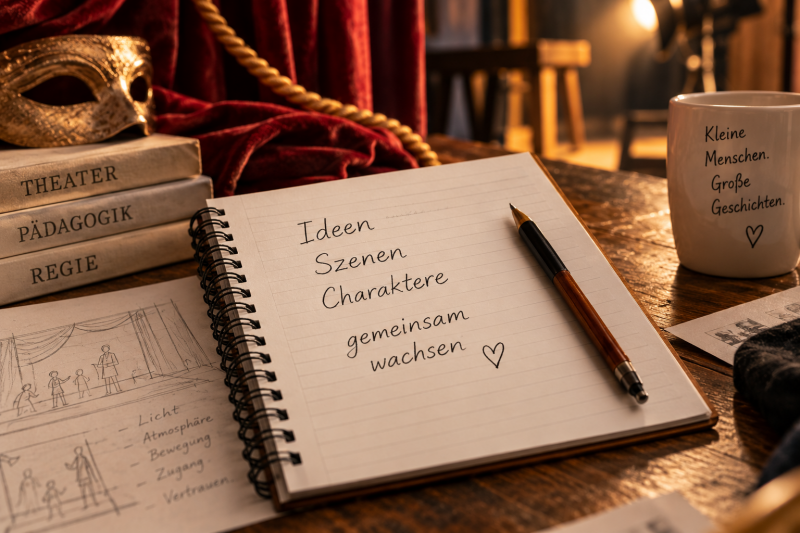 THEATER
PÄDAGOGIK
REGIE
Ideen
Szenen
Charaktere
gemeinsam
wachsen
Licht
Atmosphäre
Bewegung
Zugang
Vertrauen
Kleine
Menschen.
Große
Geschichten.